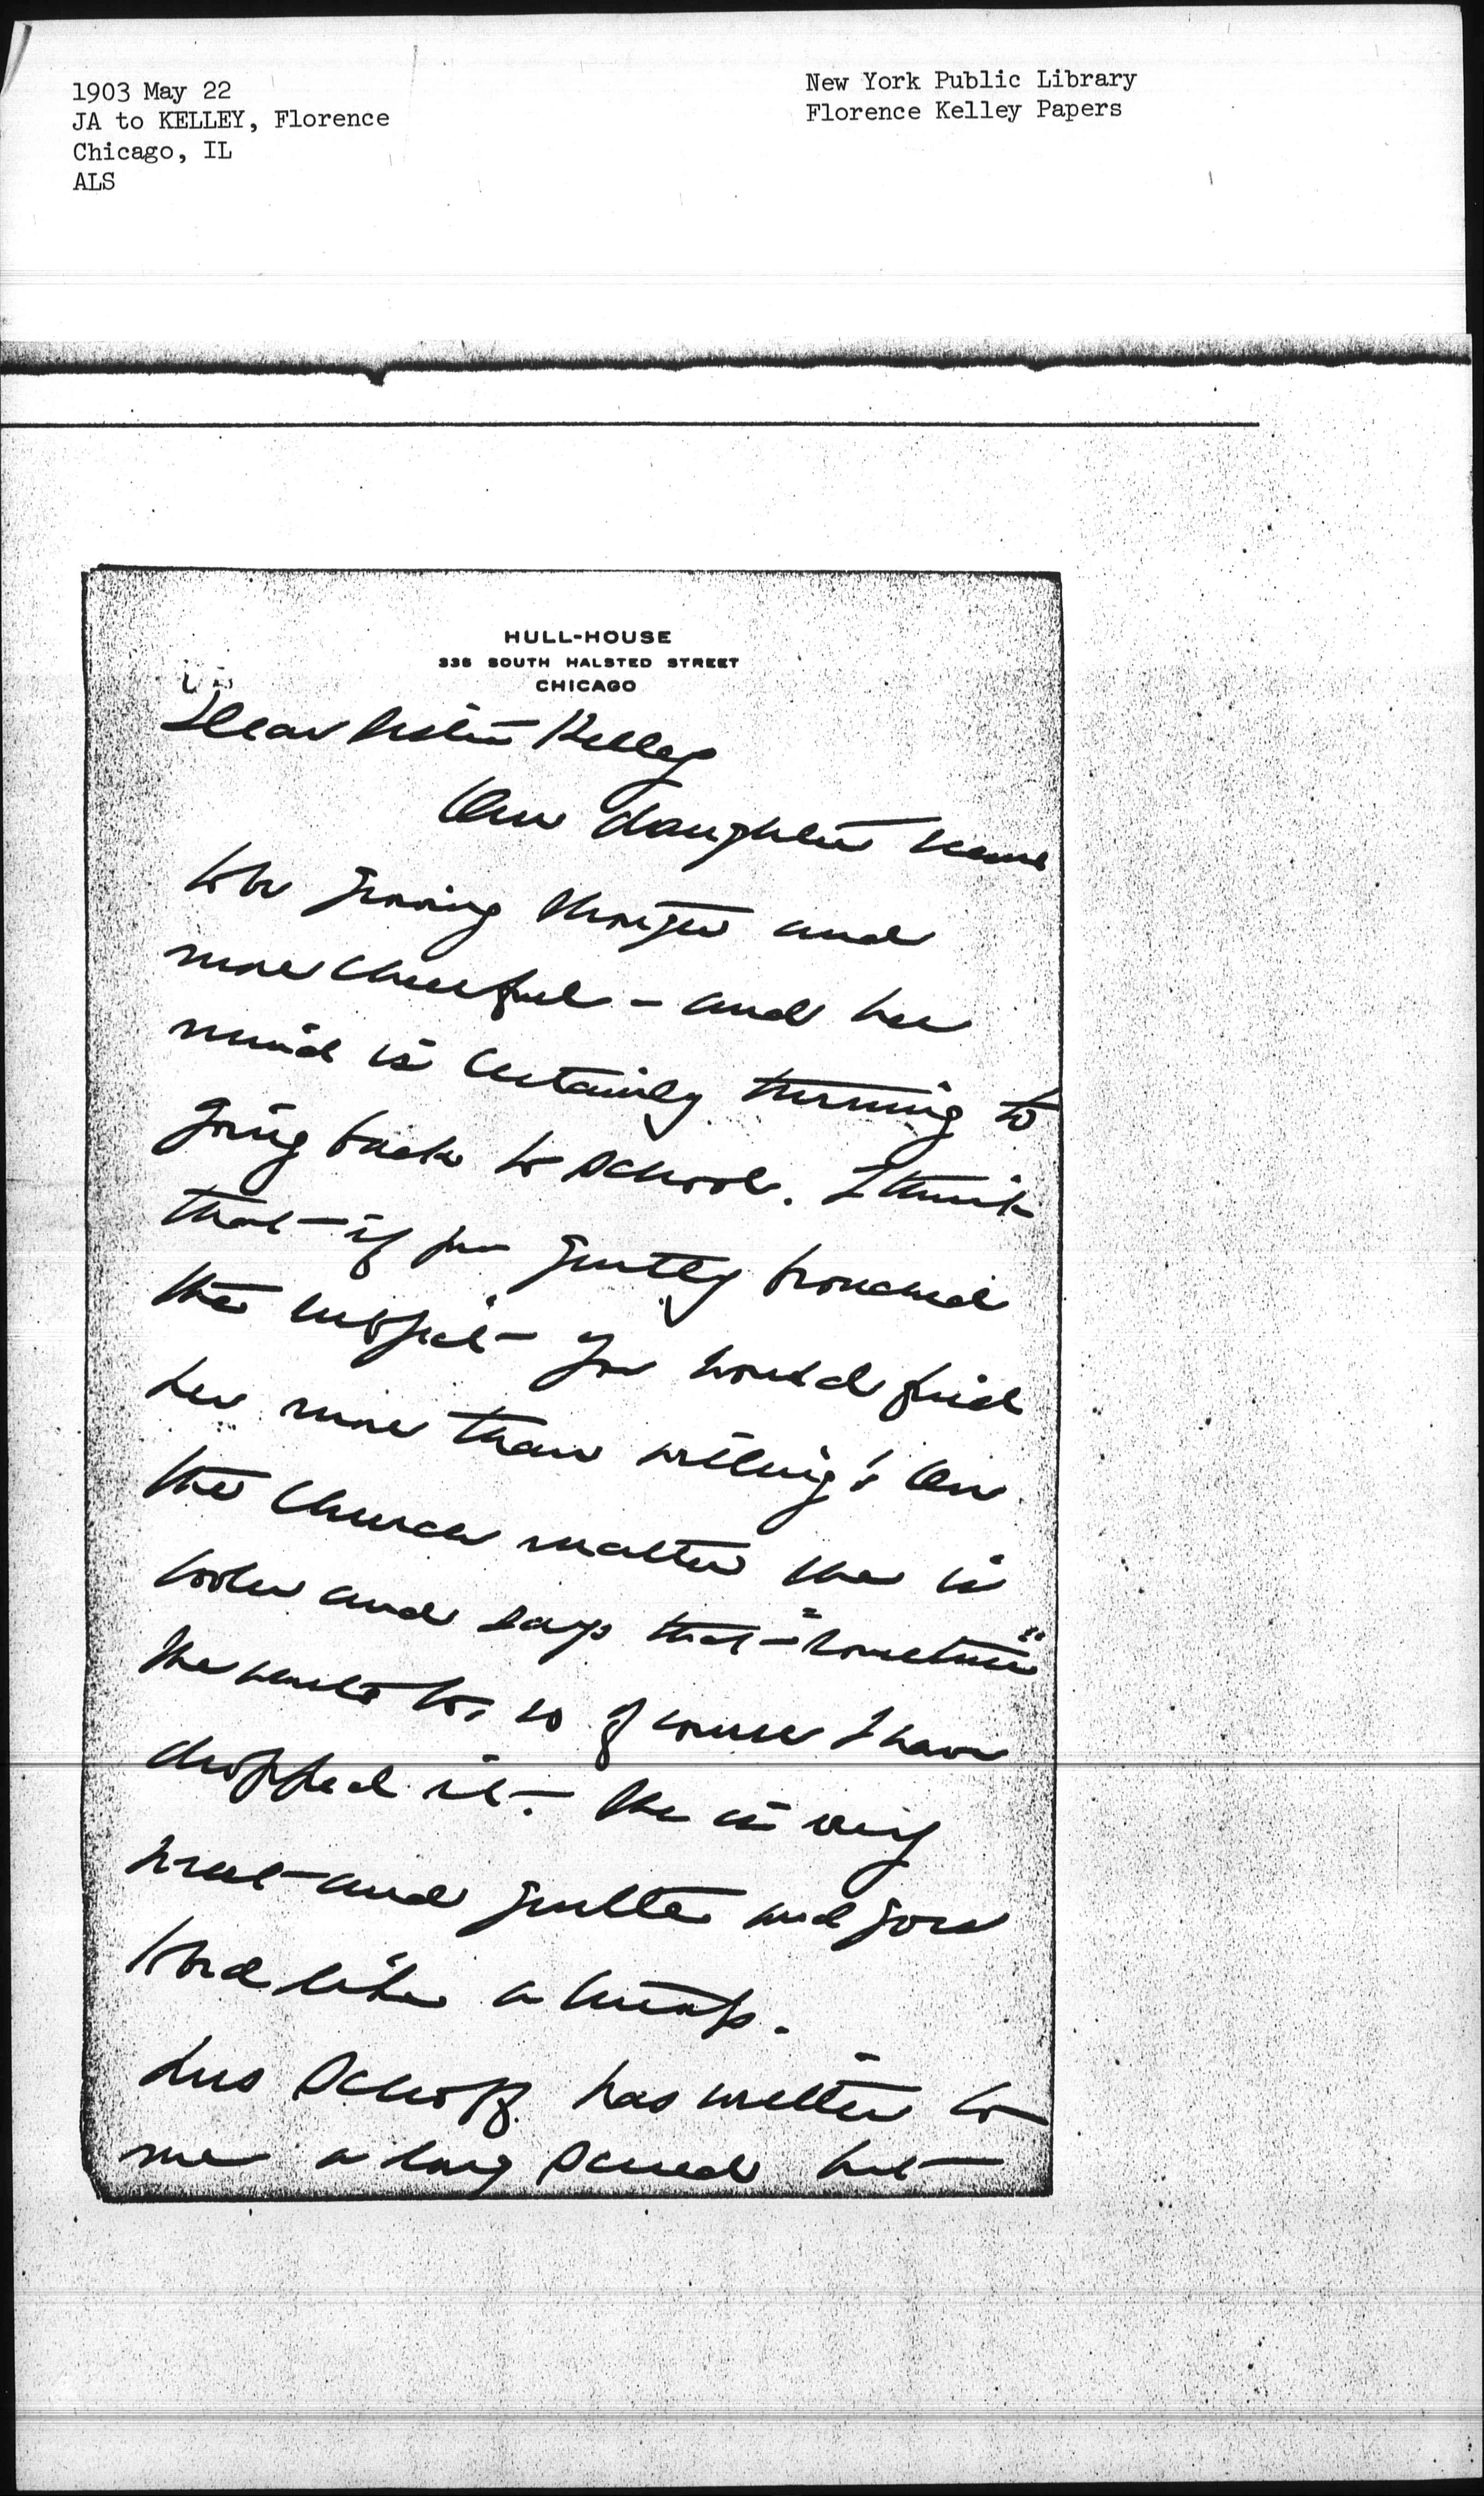 1903 May 22
JA to KELLEY, Florence
Chicago, IL
ALS
New York Public Library
Florence Kelley Papers
HULL-HOUSE
335 SOUTH HALSTED STREET
CHICAGO
Dear Sister Kelley
Our daughter seems
to be growing stronger and
more cheerful - and her
mind is certainly turning to
going back to school. I think
that if you gently broached
the subject you would find
her more than willing! On
the church matter she is
cooler and says that "sometime"
she wants to, so of course I have
dropped it. She is very
sweet and gentle and good
and like a
Mrs Schoff has written to
me a long screed but